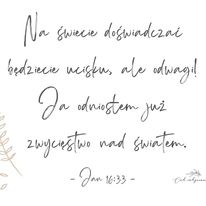 Na świecie doświadczać
będziecie ucisku, ale odwagi!
Ja odniosłem już
zwycięstwo nad światem.
- Jan 16:33 -